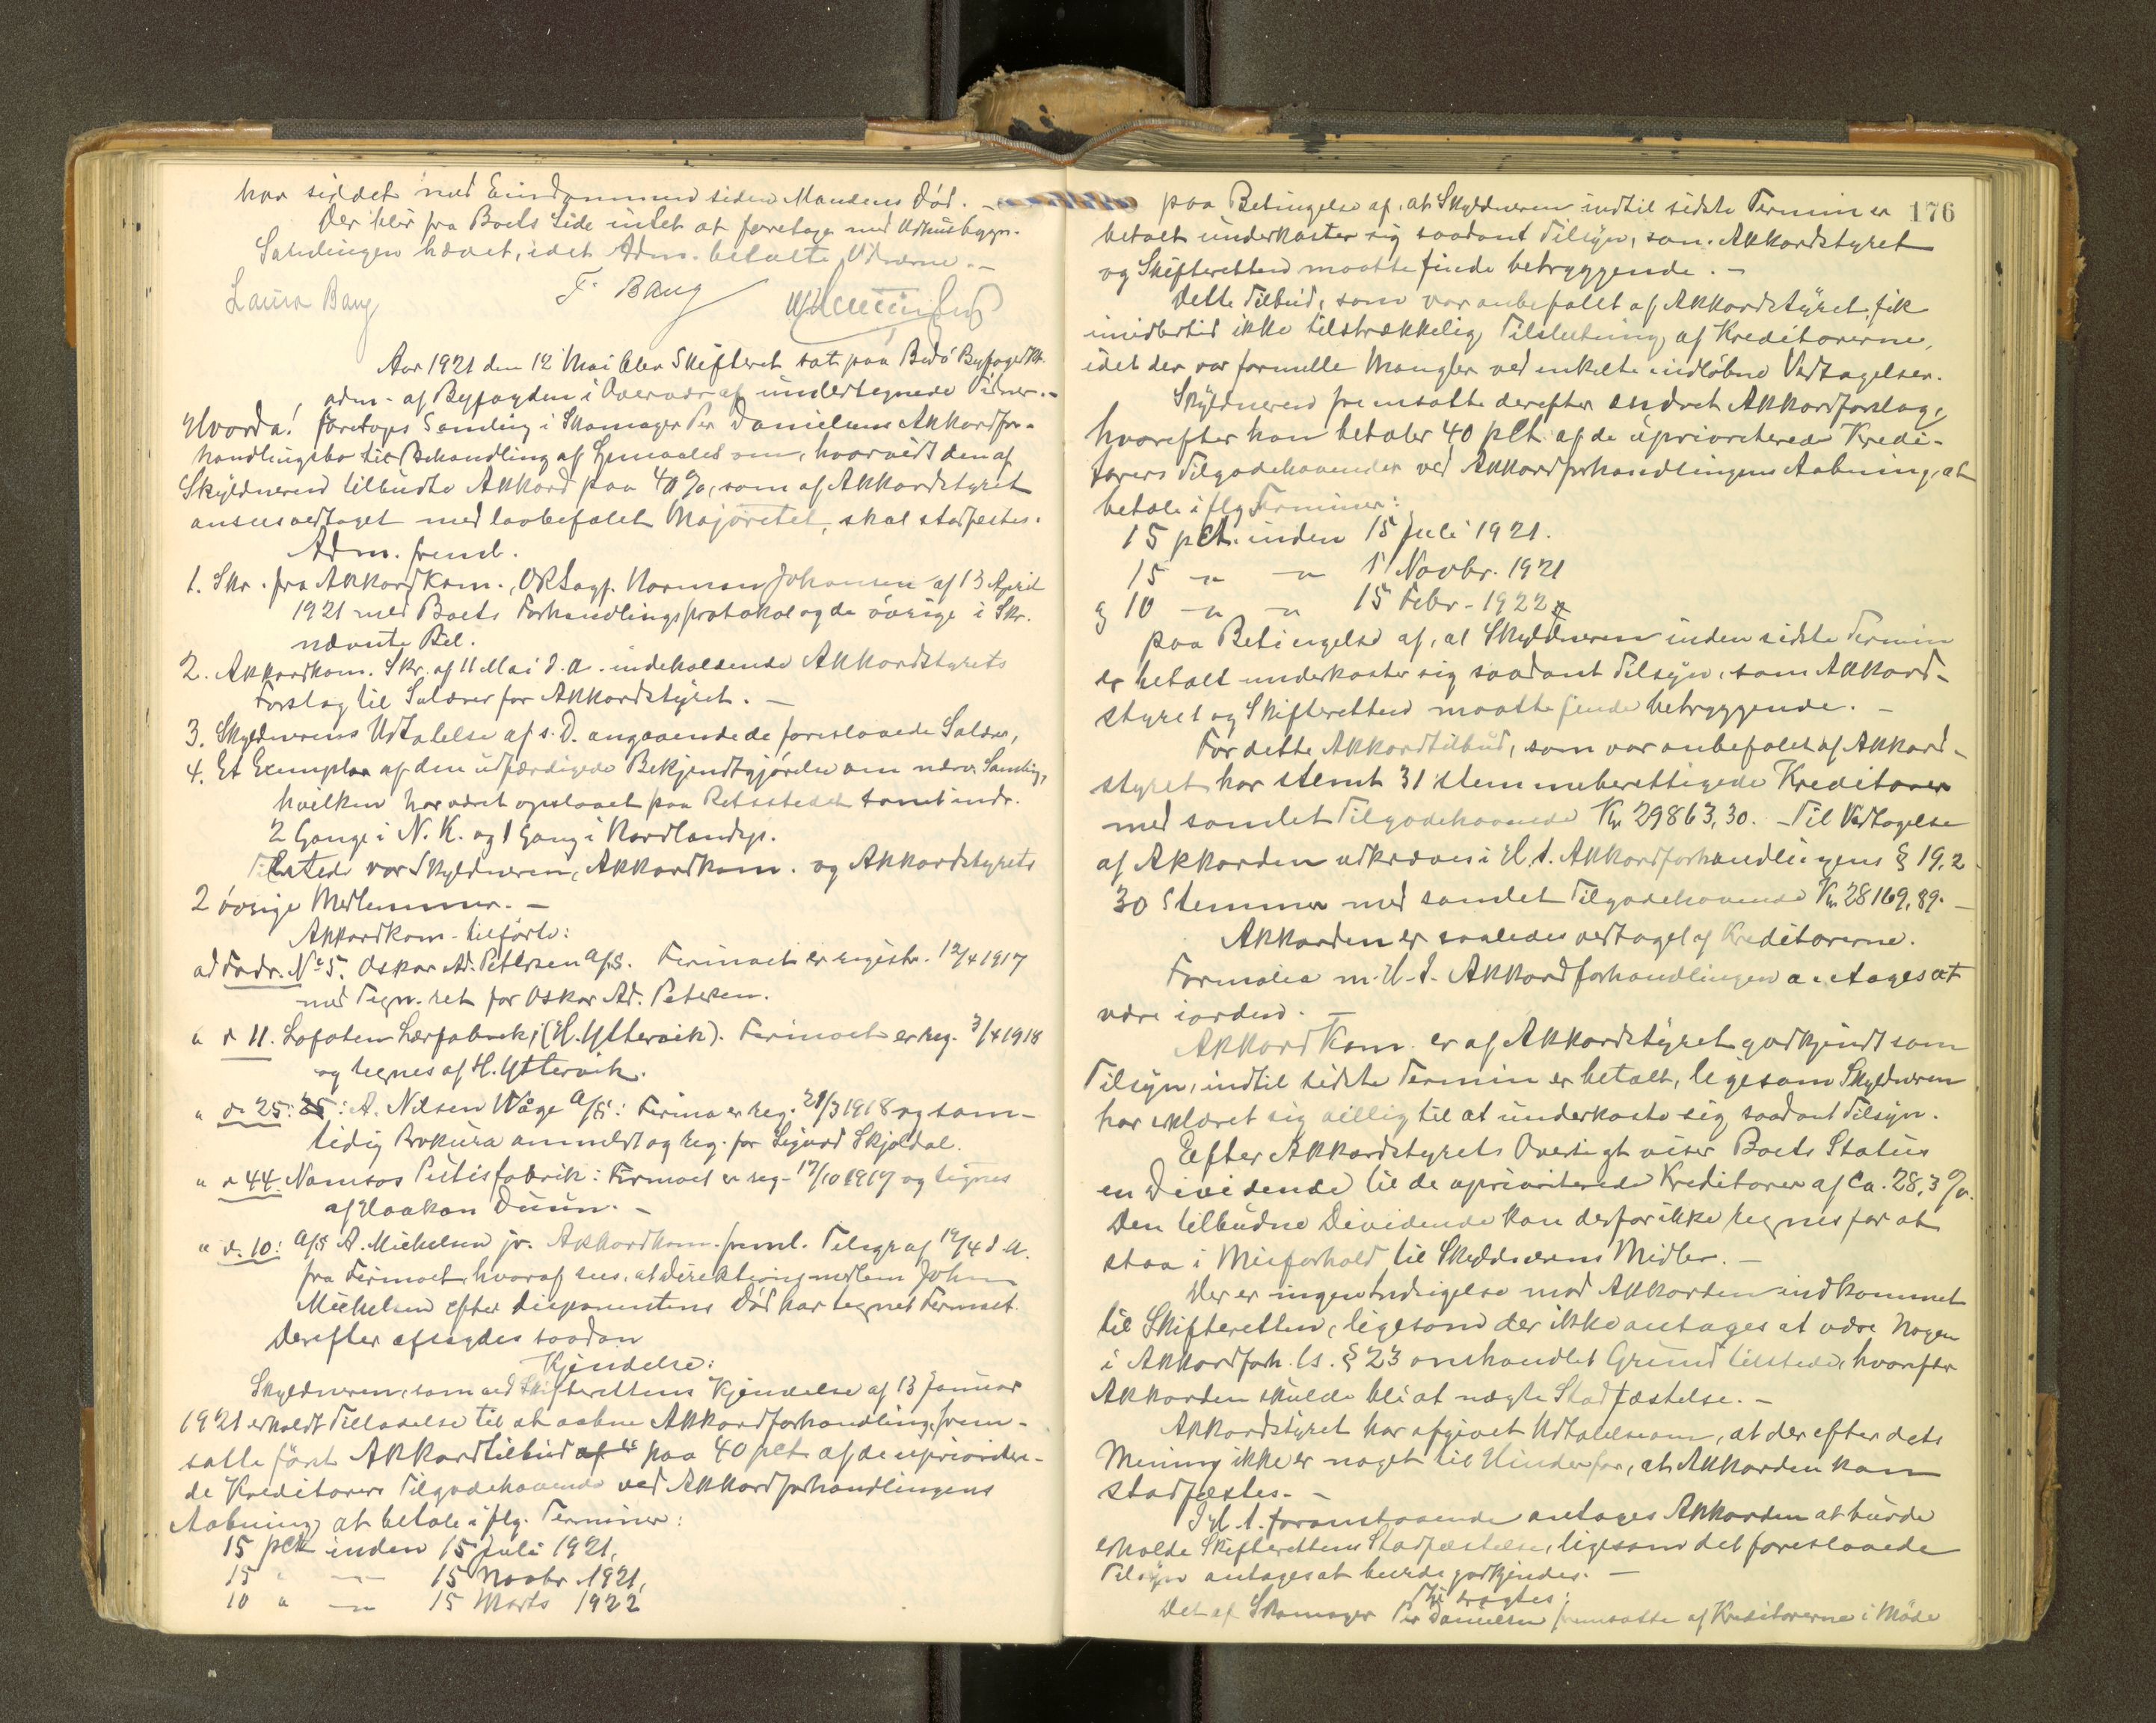 har siddet med Eiendommen siden Mandens Död. -
Der blir fra Boets Side intet at foretage med Udhusbygn.
Samlingen hævet, idet Adm. betalte Vidnerne. -
Laura Bang F. Bang
Aar 1921 den 12 Mai blev Skifteret sat paa Bodö Byfogedktr.
adm. af Byfogden i Overvær af undertegnede Vidner. -
Hvorda! foretoges Samling i Skomager Per Danielsens Akkordfor-
handlingsbo til Behandling af Spmaalet om, hvorvidt den af
Skyldneren tilbudte Akkord paa 40 %, som af Akkordstyret
ansees vedtaget med lovbefalet Majoritet, skal stadfestes.
Adm. freml.
1. Skr. fra Akkordkom., ORSagf. Norman Johansen af 13 April
1921 med Boets Forhandlingsprotokol og de övrige i Skr.
nævnte Bil.
2. Akkordkom. Skr. af 11 Mai d. A. indeholdende Akkordstyrets
Forslag til Salærer for Akkordstyret. -
3. Skyldnerens Udtalelse af s. D. angaaende de foreslaaede Salærer,
4. Et Exemplar af den udfærdigede Bekjendtgjörelse om nærv. Samling,
hvilken har været opslaaet paa Retsstedet samt indr.
2 Gange i N. K. og 1 Gang i Nordlandsp.
Tilstede var Skyldneren, Akkordkom. og Akkordstyrets
2 övrige Medlemmer. -
Akkordkom. tilförte:
ad Fordr. No 5. Oskar Ad. Petersen A/S. Firmaet er registr. 12/4 1917
med Tegn. ret for Oskar Ad. Petersen.
" " 11. Lofoten Lærfabrik, (H. Yttervik). Firmaet er reg. 3/4 1918
og tegnes af H. Yttervik.
" " 25: 25: A. Nilsen Wåge A/S: Firma er reg. 21/3 1918 og sam-
tidig Prokura anmeldt og reg. for Sigurd Skjoldal.
" " 44. Namsos Putisfabrik: Firmaet er reg. 17/10 1917 og tegnes
af Haakon Duun. -
" " 10: A/S A. Michelsen jr. Akkordkom. freml. Telegr af 12/4 d. A.
fra Firmaet hvoraf sees, at Direktionsmedlem John
Michelsen efter Disponentens Död har tegnet Firmaet.
Derefter afsagdes saadan
Kjendelse:
Skyldneren, som ved Skifterettens Kjendelse af 13 Januar
1921 erholdt Tilladelse til at aabne Akkordforhandling, frem-
satte först Akkordtilbud af paa 40 pct af de uprioritere-
de Kreditorers Tilgodehavende ved Akkordforhandlingens
Aabning, at betale i flg. Terminer:
15 pct inden 15 Juli 1921,
15 " - 15 Novbr. 1921,
10 " - " 15 Marts 1922
176
paa Betingelse af, at Skyldneren indtil sidste Termin er
betalt underkaster sig saadant Tilsyn, som Akkordstyret
og Skifteretten maatte finde betryggende. -
Dette Tilbud, som var anbefalet af Akkordstyret, fik
imidlertid ikke tilstrækkelig Tilslutning af Kreditorerne,
idet der var formelle Mangler ved enkelte indlöbne Vedtagelser.
Skyldneren fremsatte derefter andret Akkordforslag,
hvorefter han betaler 40 pct. af de uprioriterede Kredi-
torers Tilgodehavender ved Akkordforhandlingens Aabning, at
betale i flg Terminer:
15 pct. inden 15 Juli 1921.
15 - " - " 1 Novbr. 1921
og 10 - " - " 15 Febr. 1922
paa Betingelse af, at Skyldneren inden sidste Termin
er betalt underkaster sig saadant Tilsyn, som Akkord-
styret og Skifteretten maatte finde betryggende. -
For dette Akkordtilbud, som var anbefalet af Akkord-
styret har stemt 31 stemmeberettigede Kreditorer
med samlet Tilgodehavende Kr. 29863,30. - Til Vedtagelse
af Akkorden udkræves i H. t. Akkordforhandlingens § 19, 2
30 Stemmer med samlet Tilgodehavende Kr. 28169,89. -
Akkorden er saaledes vedtaget af Kreditorerne.
Formalia m. H. t. Akkordforhandlingen antages at
være iorden. -
Akkordkom. er af Akkordstyret godkjendt som
Tilsyn, indtil sidste Termin er betalt, ligesom Skyldneren
har erklæret sig villig til at underkaste sig saadant Tilsyn.
Efter Akkordstyrets Oversigt viser Boets Status
en Dividende til de uprioriterede Kreditorer af ca. 28,3 %.
Den tilbudne Dividende kan derfor ikke regnes for at
staa i Misforhold til Skyldnerens Midler. -
Der er ingen Indsigelse mod Akkorden indkommet
til Skifteretten, ligesom der ikke antages at være Nogen
i Akkordforh. ls. § 23 omhandlet Grund tilstede, hvorefter
Akkorden skulde bli at nægte Stadfæstelse. -
Akkordstyret har afgivet Udtalelse om, at der efter dets
Mening ikke er noget til Hinder for, at Akkorden kan
stadfæstes. -
I H. t. foranstaaende antages Akkorden at burde
erholde Skifterettens Stadfæstelse, ligesom det foreslaaede
Tilsyn antages at burde godkjendes. -
Thi eragtes:
Det af Skomager Per Danielsen fremsatte af Kreditorerne i Möde